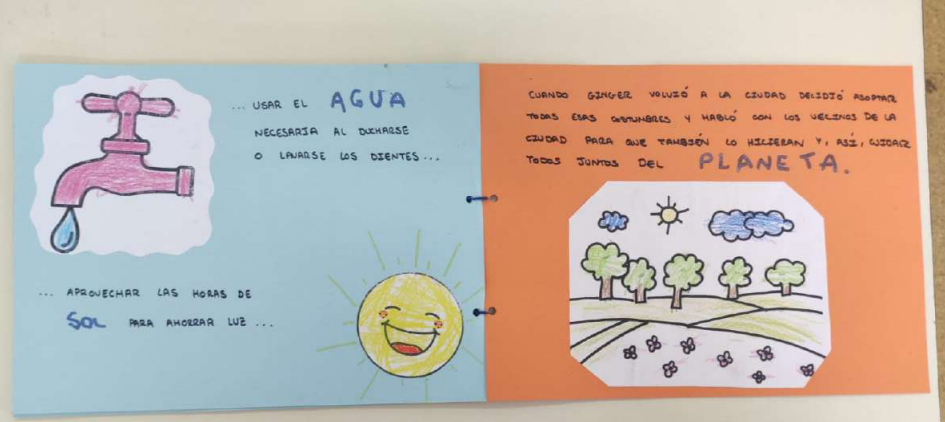 ... USAR EL AGUA
NECESARIA AL DUCHARSE
O LAVARSE LOS DIENTES...
... APROVECHAR LAS HORAS DE
SOL PARA AHORRAR LUZ ...
CUANDO GINGER VOLVIÓ A LA CIUDAD DECIDIÓ ADOPTAR
TODAS ESAS COSTUMBRES Y HABLÓ CON LOS VECINOS DE LA
CIUDAD PARA QUE TAMBIÉN LO HICIERAN Y, ASÍ, CUIDAR
TODOS JUNTOS DEL PLANETA.